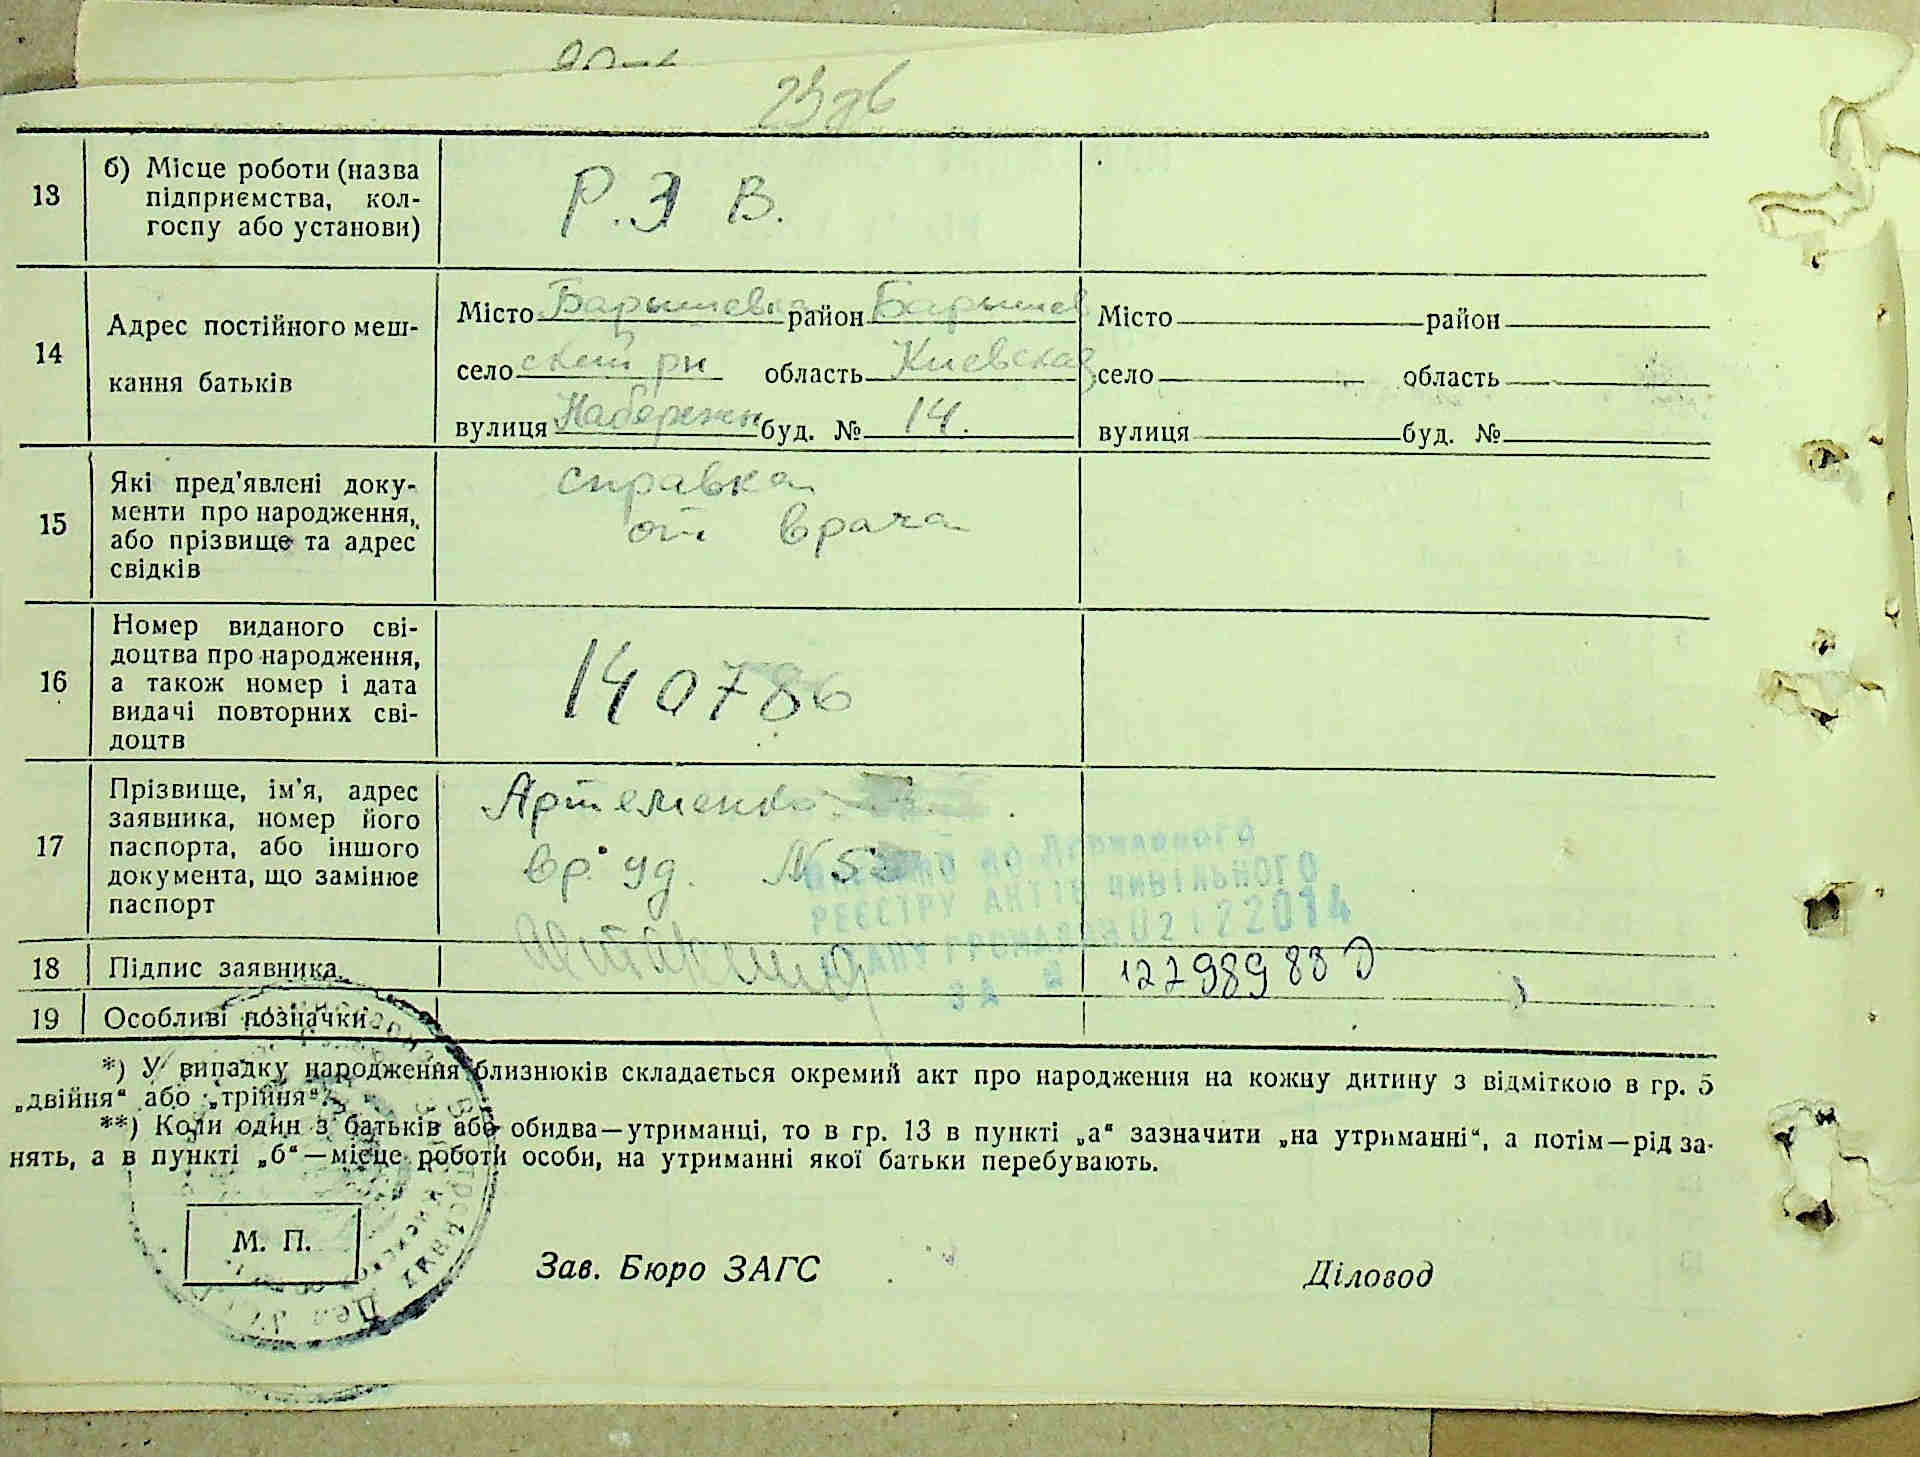 23 зв
13
б) Місце роботи (назва
підприємства, кол-
госпу або установи)
Р.Э В.
14
Адрес постійного меш-
кання батьків
Місто Барышевка район Барышев
село ский рн область Киевская
вулиця Набережн буд. № 14.
Місто район
село область
вулиця буд. №
15
Які пред'явлені доку-
менти про народження,
або прізвище та адрес
свідків
справка
от врача
16
Номер виданого сві-
доцтва про народження,
а також номер і дата
видачі повторних сві-
доцтв
140786
17
Прізвище, ім'я, адрес
заявника, номер його
паспорта, або іншого
документа, що замінює
паспорт
Артеменко
вр. уд. № 5
до Державного
реєстру актів цивільного
стану громадян 02 12 2014
за №
18
Підпис заявника
12298988
19
Особливі позначки
*) У випадку народження близнюків складається окремий акт про народження на кожну дитину з відміткою в гр. 5
„двійня“ або „трійня“.
**) Коли один з батьків або обидва—утриманці, то в гр. 13 в пункті „а“ зазначити „на утриманні“, а потім—рід за-
нять, а в пункті „б“—місце роботи особи, на утриманні якої батьки перебувають.
М. П.
Зав. Бюро ЗАГС
Діловод